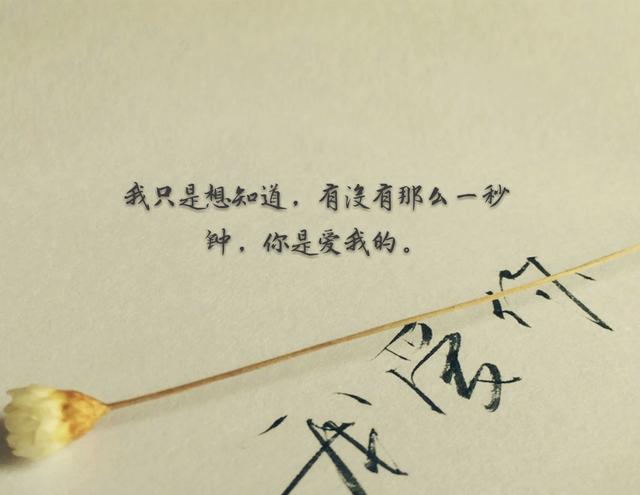 我只是想知道，有没有那么一秒
钟，你是爱我的。